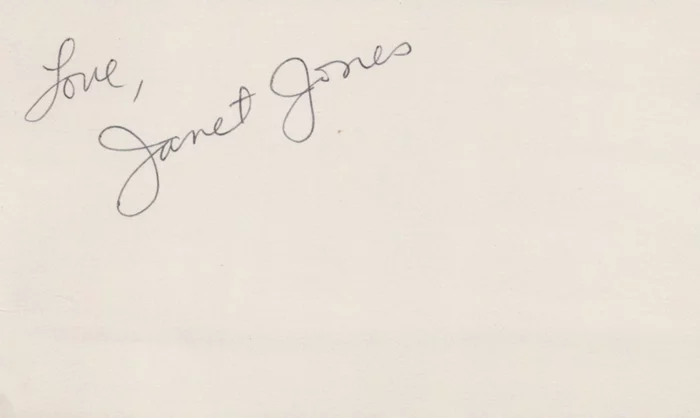 Love,
Janet Jones